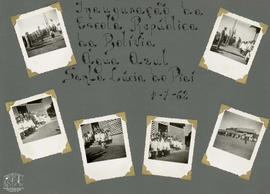 Inauguração da
Escola República
da Bolívia
Água Azul
Santa Lúcia do Piaí
7-62